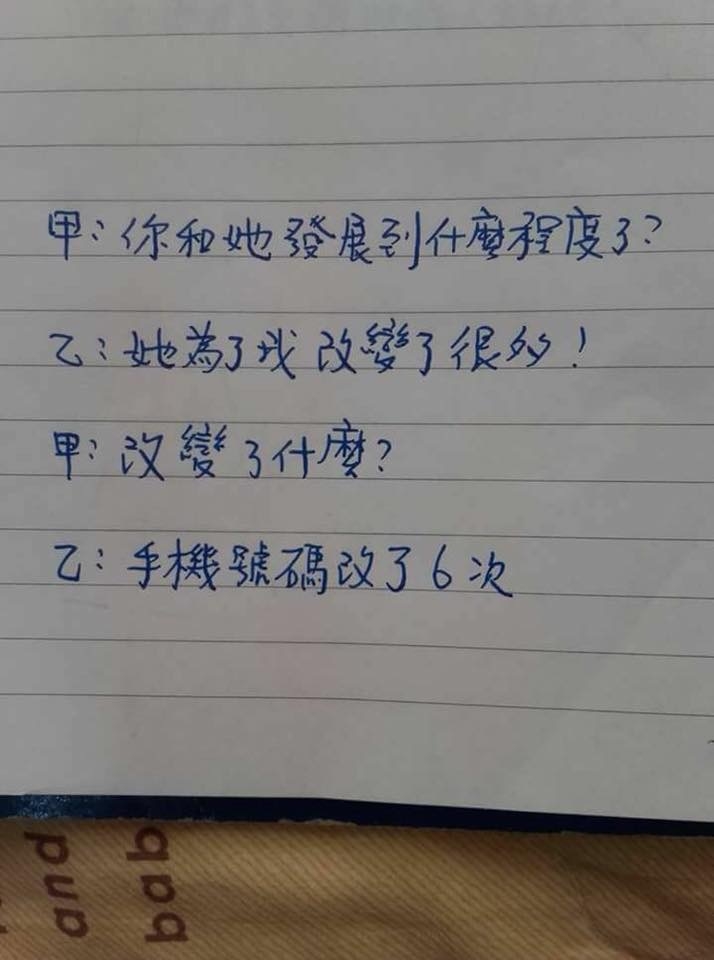 甲：你和她發展到什麼程度了？
乙：她為了我改變了很多！
甲：改變了什麼？
乙：手機號碼改了6次
and
bab